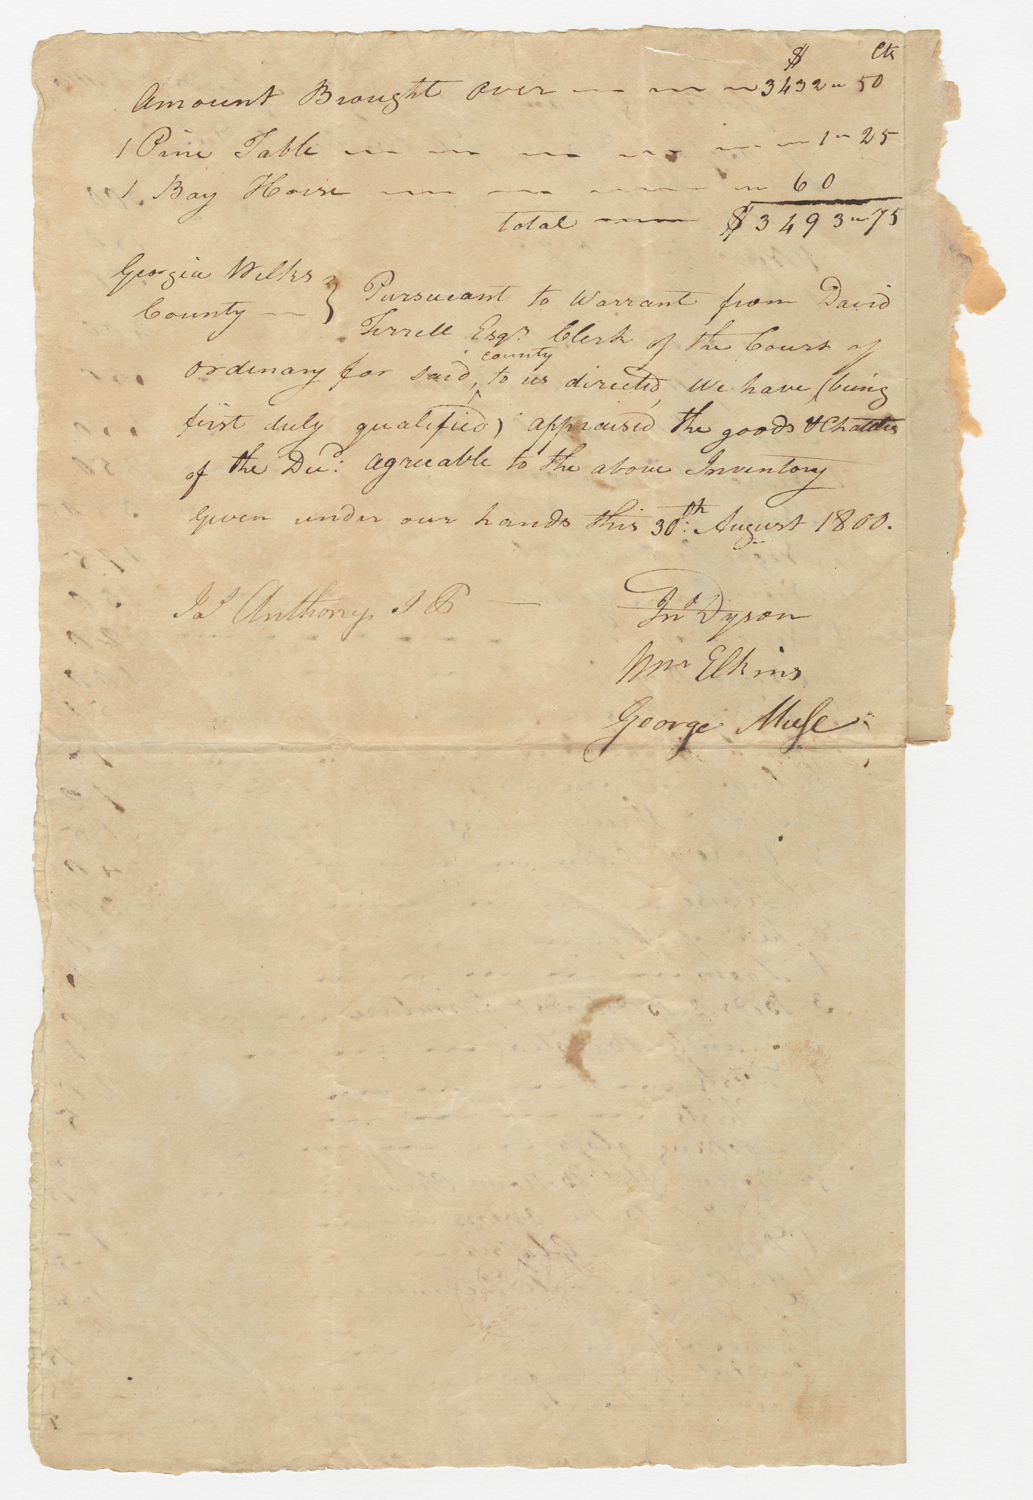 $ Cts
Amount Brought over 3432 " 50
1 Pine Table 1 " 25
1 Bay Horse 60
total $3493 " 75
Georgia Wilks
County } Pursueant to Warrant from David
Terrell Esqr. Clerk of the Court of
county
ordenary for said, ^ to us directed, We have (being
first duly qualified) appraised the goods & Chattles
of the Decd: agreeable to the above Inventory
Given under our hands this 30th: August 1800.
Jas Anthony J P Jno Dyson
Wm Elkins
George Muse